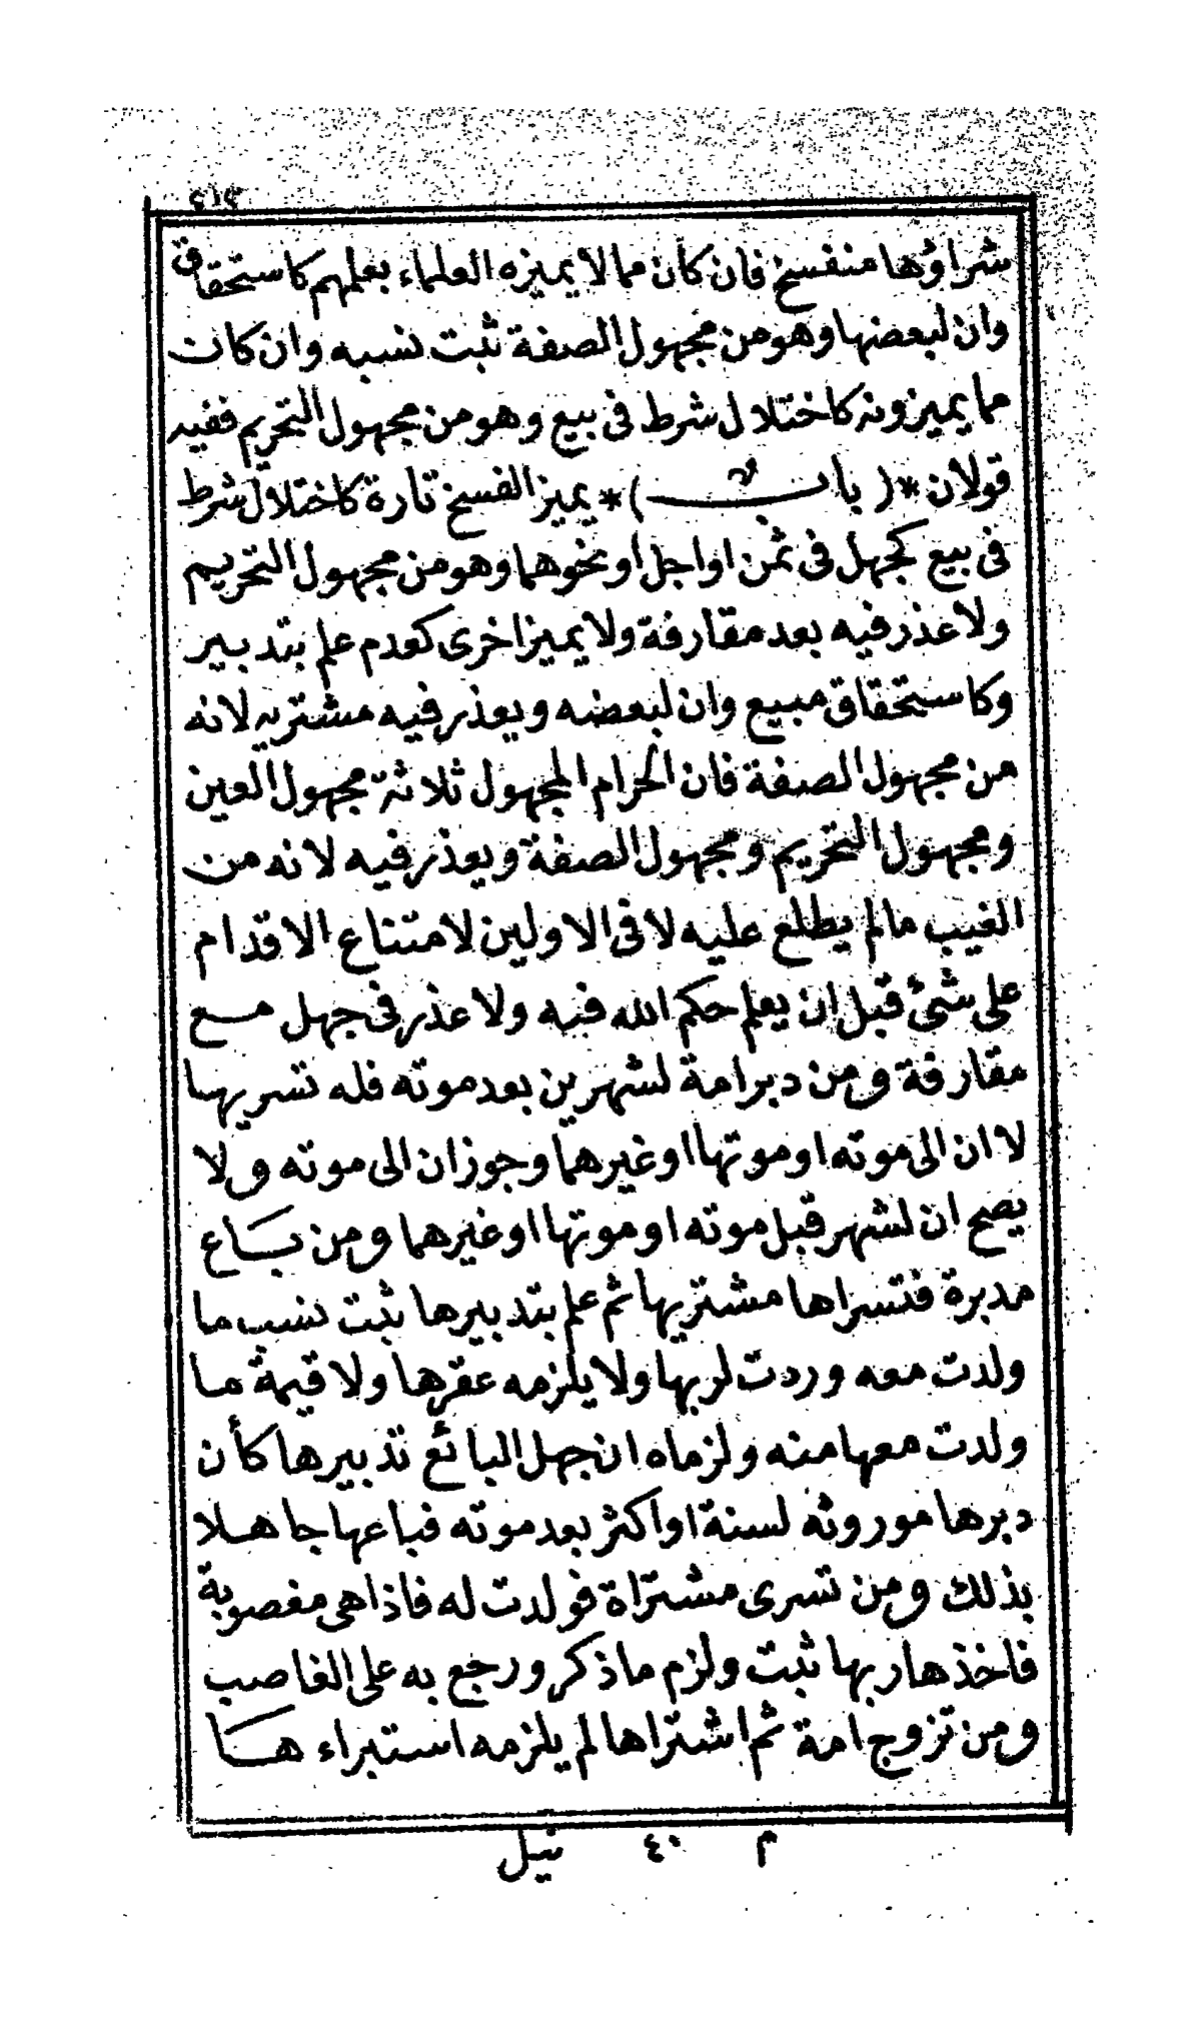 ٣١٣
شراؤها منفسخ فان كان مما لا يميزه العلماء بعلمهم كاستحقاق
وان لبعضها وهو من مجهول الصفة ثبت نسبه وان كان
مما يميزونه كاختلال شرط فى بيع وهو من مجهول التحريم ففيه
قولان *( باب )* يميز الفسخ تارة كاختلال شرط
فى بيع كجهل فى ثمن او اجل او نحوهما وهو من مجهول التحريم
ولا عذر فيه بعد مقارفة ولا يميز اخرى كعدم علم بتدبير
وكاستحقاق مبيع وان لبعضه ويعذر فيه مشتريه لانه
من مجهول الصفة فان الحرام المجهول ثلاثة مجهول العين
ومجهول التحريم ومجهول الصفة ويعذر فيه لانه من
الغيب ما لم يطلع عليه لا فى الاولين لامتناع الاقدام
على شئ قبل ان يعلم حكم الله فيه ولا عذر فى جهل مع
مقارفة ومن دبر امة لشهرين بعد موته فله تسريها
لا ان الى موته او موتها او غيرهما وجوز ان الى موته ولا
يصح ان لشهر قبل موته او موتها او غيرهما ومن باع
مدبرة فتسراها مشتريها ثم علم بتدبيرها ثبت نسب ما
ولدت معه وردت لربها ولا يلزمه عقرها ولا قيمة ما
ولدت معها منه ولزماه ان جهل البائع تدبيرها كأن
دبرها موروثه لسنة او اكثر بعد موته فباعها جاهلا
بذلك ومن تسرى مشتراة فولدت له فاذا هى مغصوبة
فاخذها ربها ثبت ولزم ما ذكر ورجع به على الغاصب
ومن تزوج امة ثم اشتراها لم يلزمه استبراءها
م ٤٠ نيل